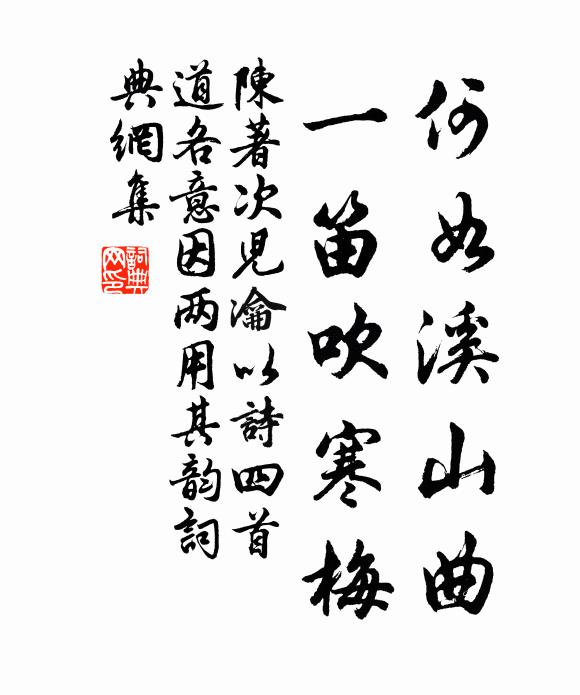 何如溪山曲
一笛吹寒梅
陳著次兒瀹以詩四首
道各意因两用其韵詞
典網集
詞典
网印